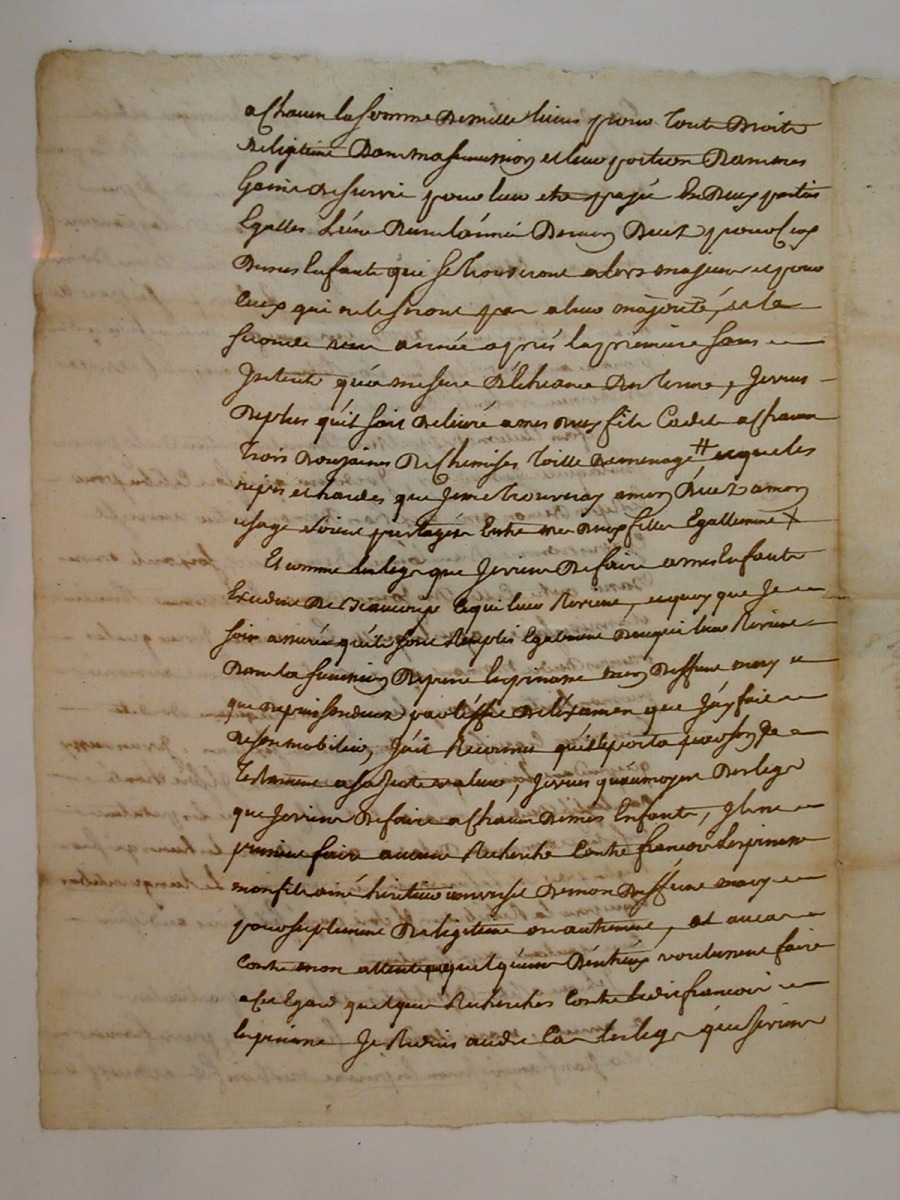 a Chacun la somme de mille livres pour tout droits
de legitime dans ma succession et leur portion dans mes
Gains de survie pour leur etre payé En deux parties
Egalles L'une dans l'année de mon decez pour Ceux
de mes Enfants qui se trouveront alors majeurs et pour
Ceux qui ne le seront pas a leur majorité, et la
seconde une année aprés la premiere sans
Interets qu'a mesure d'écheance des termes, Je veux
de plus qu'il soit delivré a mes deux fils Cadets a Chacun
trois douzaines de Chemises toille de menage # et que les
nipes et hardes que Je me trouveray a mon decez a mon
usage soient partagées Entre mes deux filles Egallement X
Et comme les legs que Je viens de faire a mes Enfants
Excedent de Beaucoup Ce qui leur Revient, et quoy que Je
sois assurée qu'ils sont Remplis Egalement de ce qui leur Revient
dans la succession de pierre Lespinasse mon deffunt mary
que depuis son decez par l'effet de l'examen que J'ay fait
de son mobilier, J'ait Reconnu qu'il porta par son
testament a sa Juste valeur, Je veux qu'au moyen des legs
que Je viens de faire a Chacun de mes Enfants, Ils ne
puissent faire aucune Recherche Contre francois Lespinasse
mon fils ainé heritier universel de mon deffunt mary
pour suplement de legitime ou autrement, et au cas
Contre mon attente que quelqu'un d'entr'eux voulussent faire
a cet Egard quelques Recherches Contre ledit francois
Lespinasse Je Reduis audit Cas les legs que Je viens